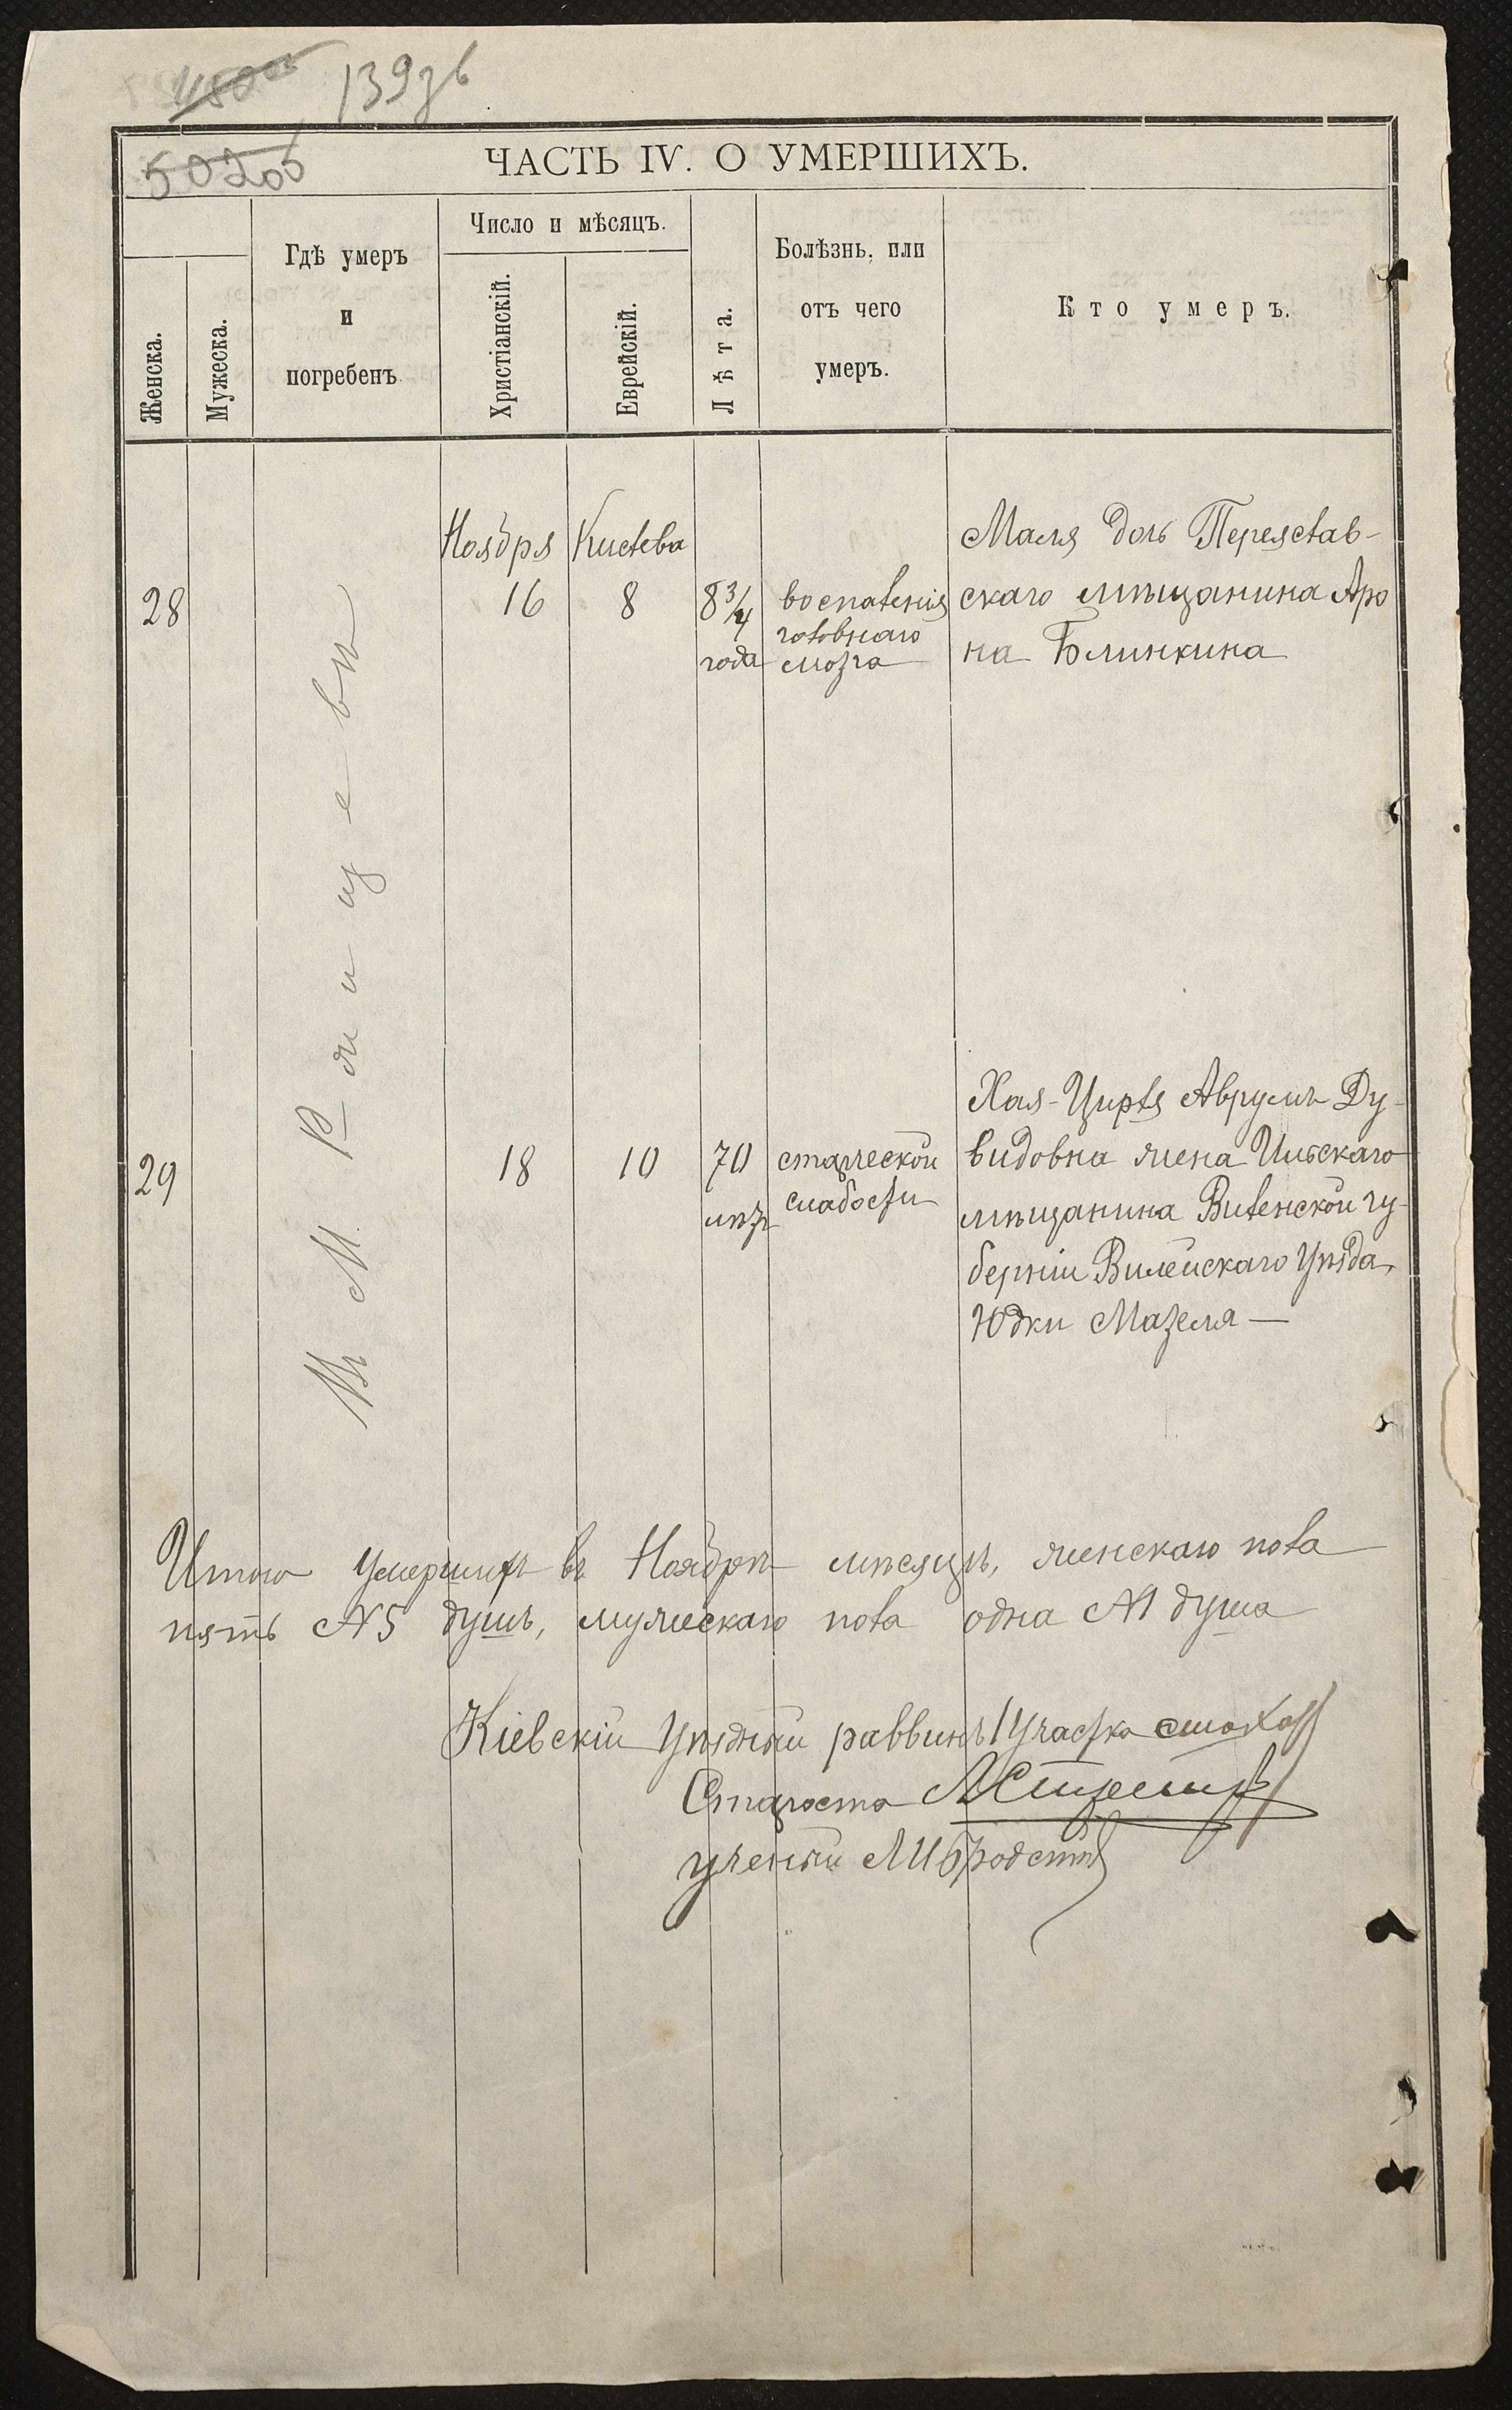 139 зв
502 об
ЧАСТЬ IV. О УМЕРШИХЪ.
Женска.
Мужеска.
Гдѣ умеръ
и
погребенъ
Число и мѣсяцъ.
Христіанскій.
Еврейскій.
Лѣта.
Болѣзнь, или
отъ чего
умеръ.
Кто умеръ.
Въ М. Ржищевѣ
28
Ноября
16
Кислева
8
8 3/4
года
воспаленія
головнаго
мозга
Маля дочь Переяслав-
скаго мѣщанина Аро
на Блинкина
29
18
10
70
лѣтъ
старческой
слабости
Хая-Цирля Аврумъ Ду-
видовна жена Ильскаго
мѣщанина Виленской гу-
берніи Вилейскаго Уѣзда,
Юдки Мазеля —
Итого умершихъ въ Ноябрѣ мѣсяцѣ, женскаго пола
пять №5 душъ, мужескаго пола одна №1 душа
Кіевскій Уѣздный раввинъ 1 Участка
Староста
ученый